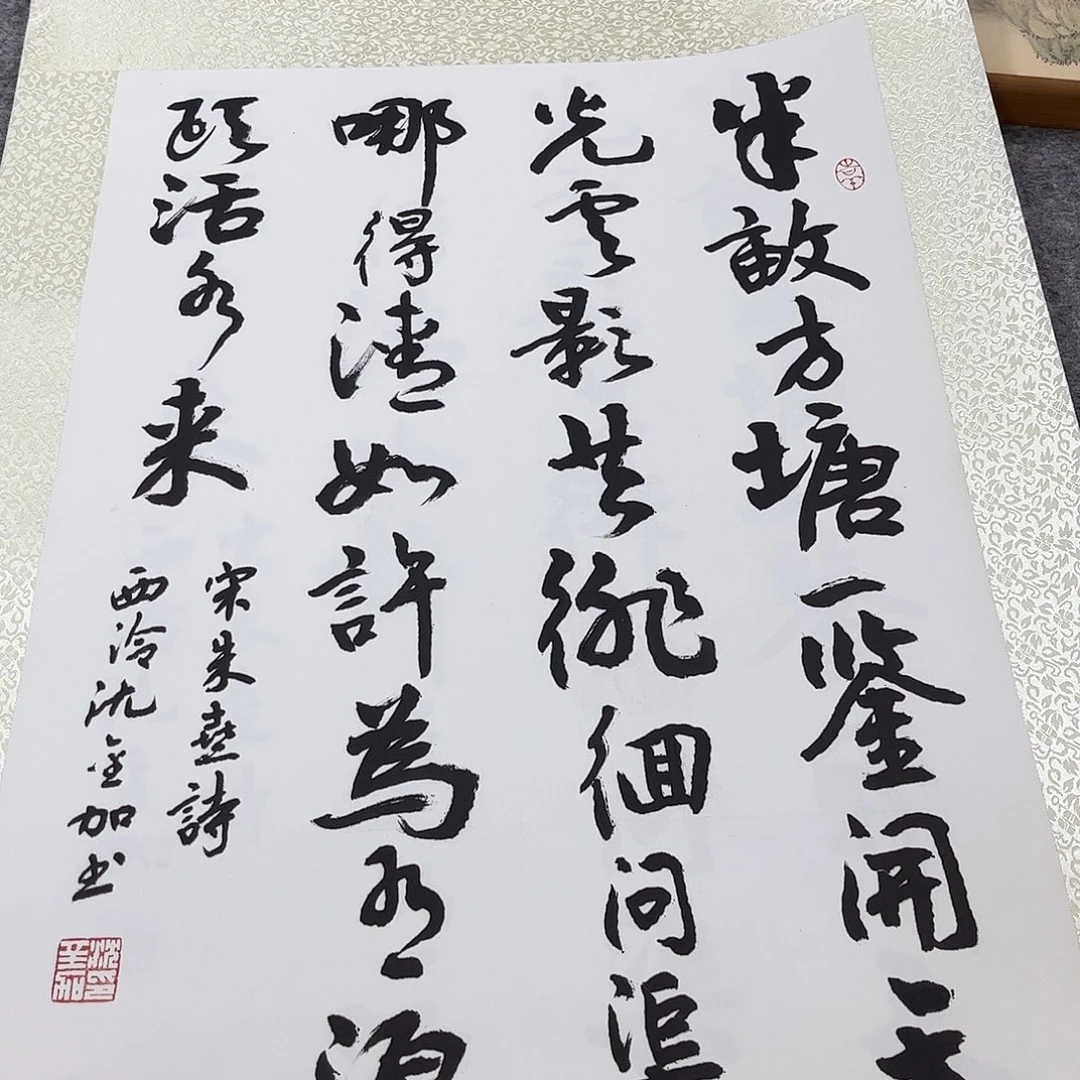 半畝方塘一鉴開天
光雲影共徘徊問渠
哪得清如許為有源
頭活水来
宋朱熹詩
西泠沈金加书